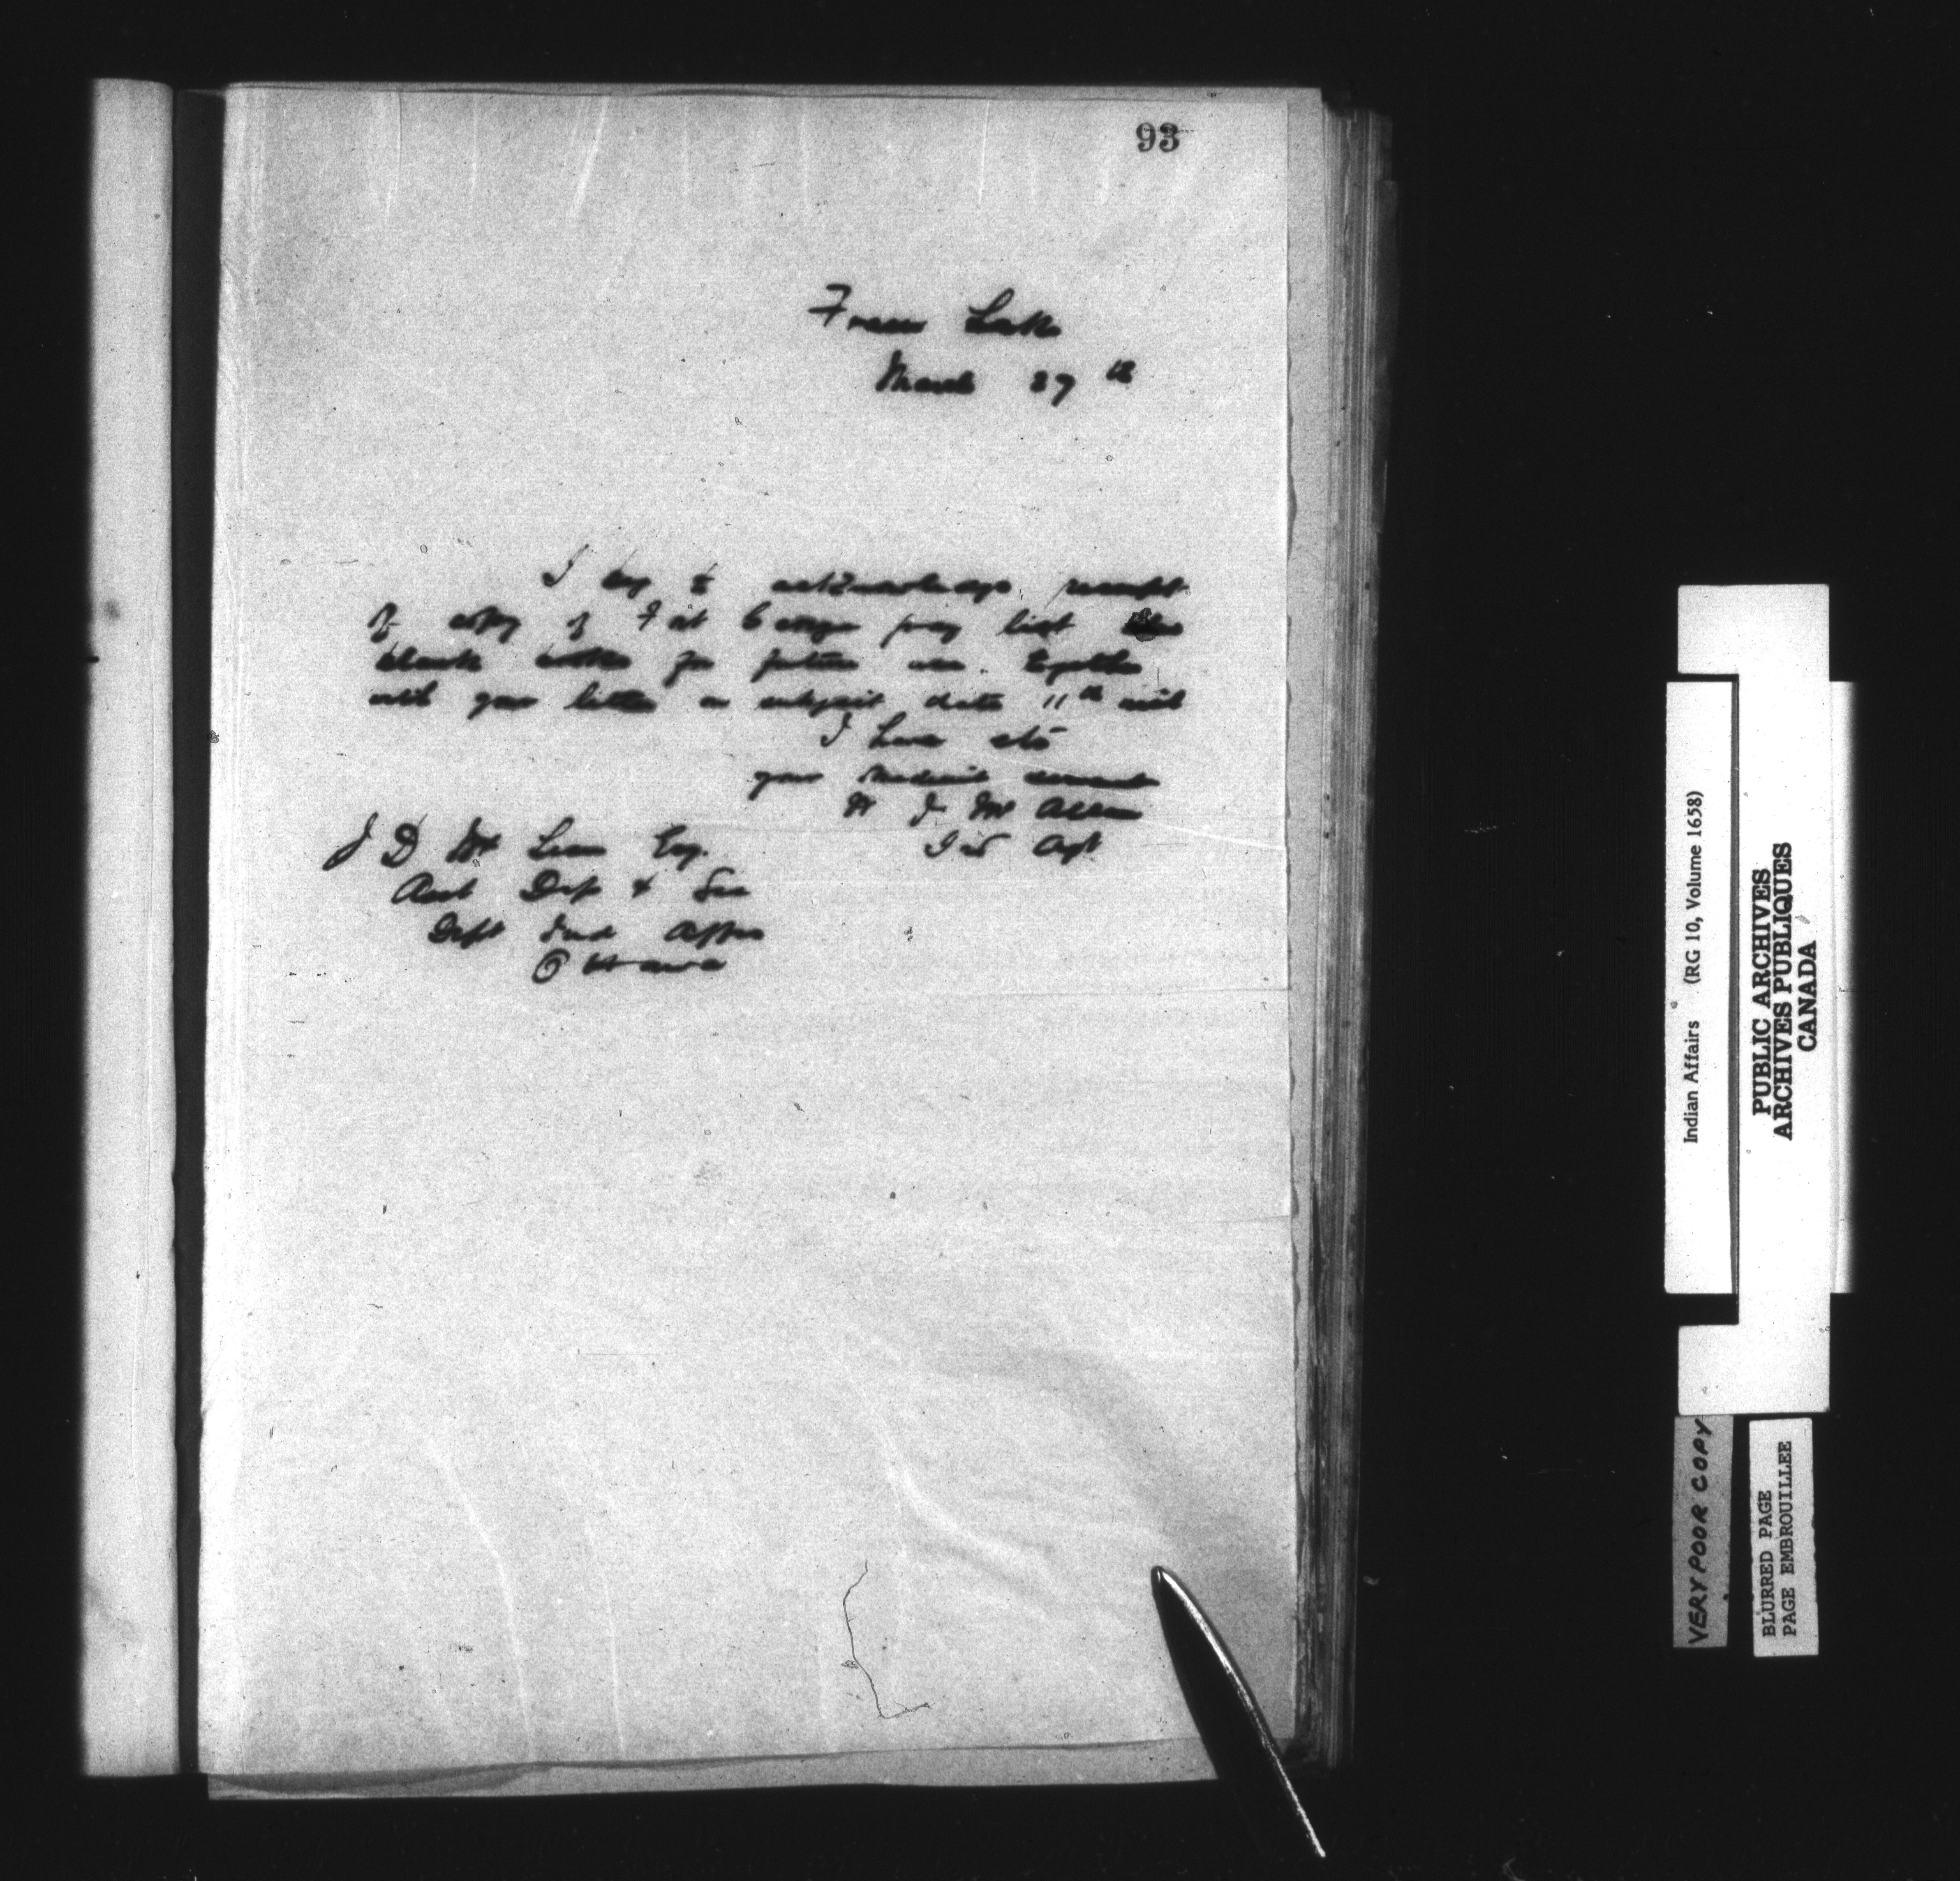 93
Fraser Lake
March 27th
I beg to acknowledge receipt
of copy of Fort George pay list also
blank for future use together
with your letter on subject date 11th
I have etc
your obedient servant
W J McAllan
Ind Agt
J D McLean Esq.
Asst Dep & Sec
Dept Ind Affrs
Ottawa
Indian Affairs (RG 10, Volume 1658)
PUBLIC ARCHIVES
ARCHIVES PUBLIQUES
CANADA
VERY POOR COPY
BLURRED PAGE
PAGE EMBROUILLEE